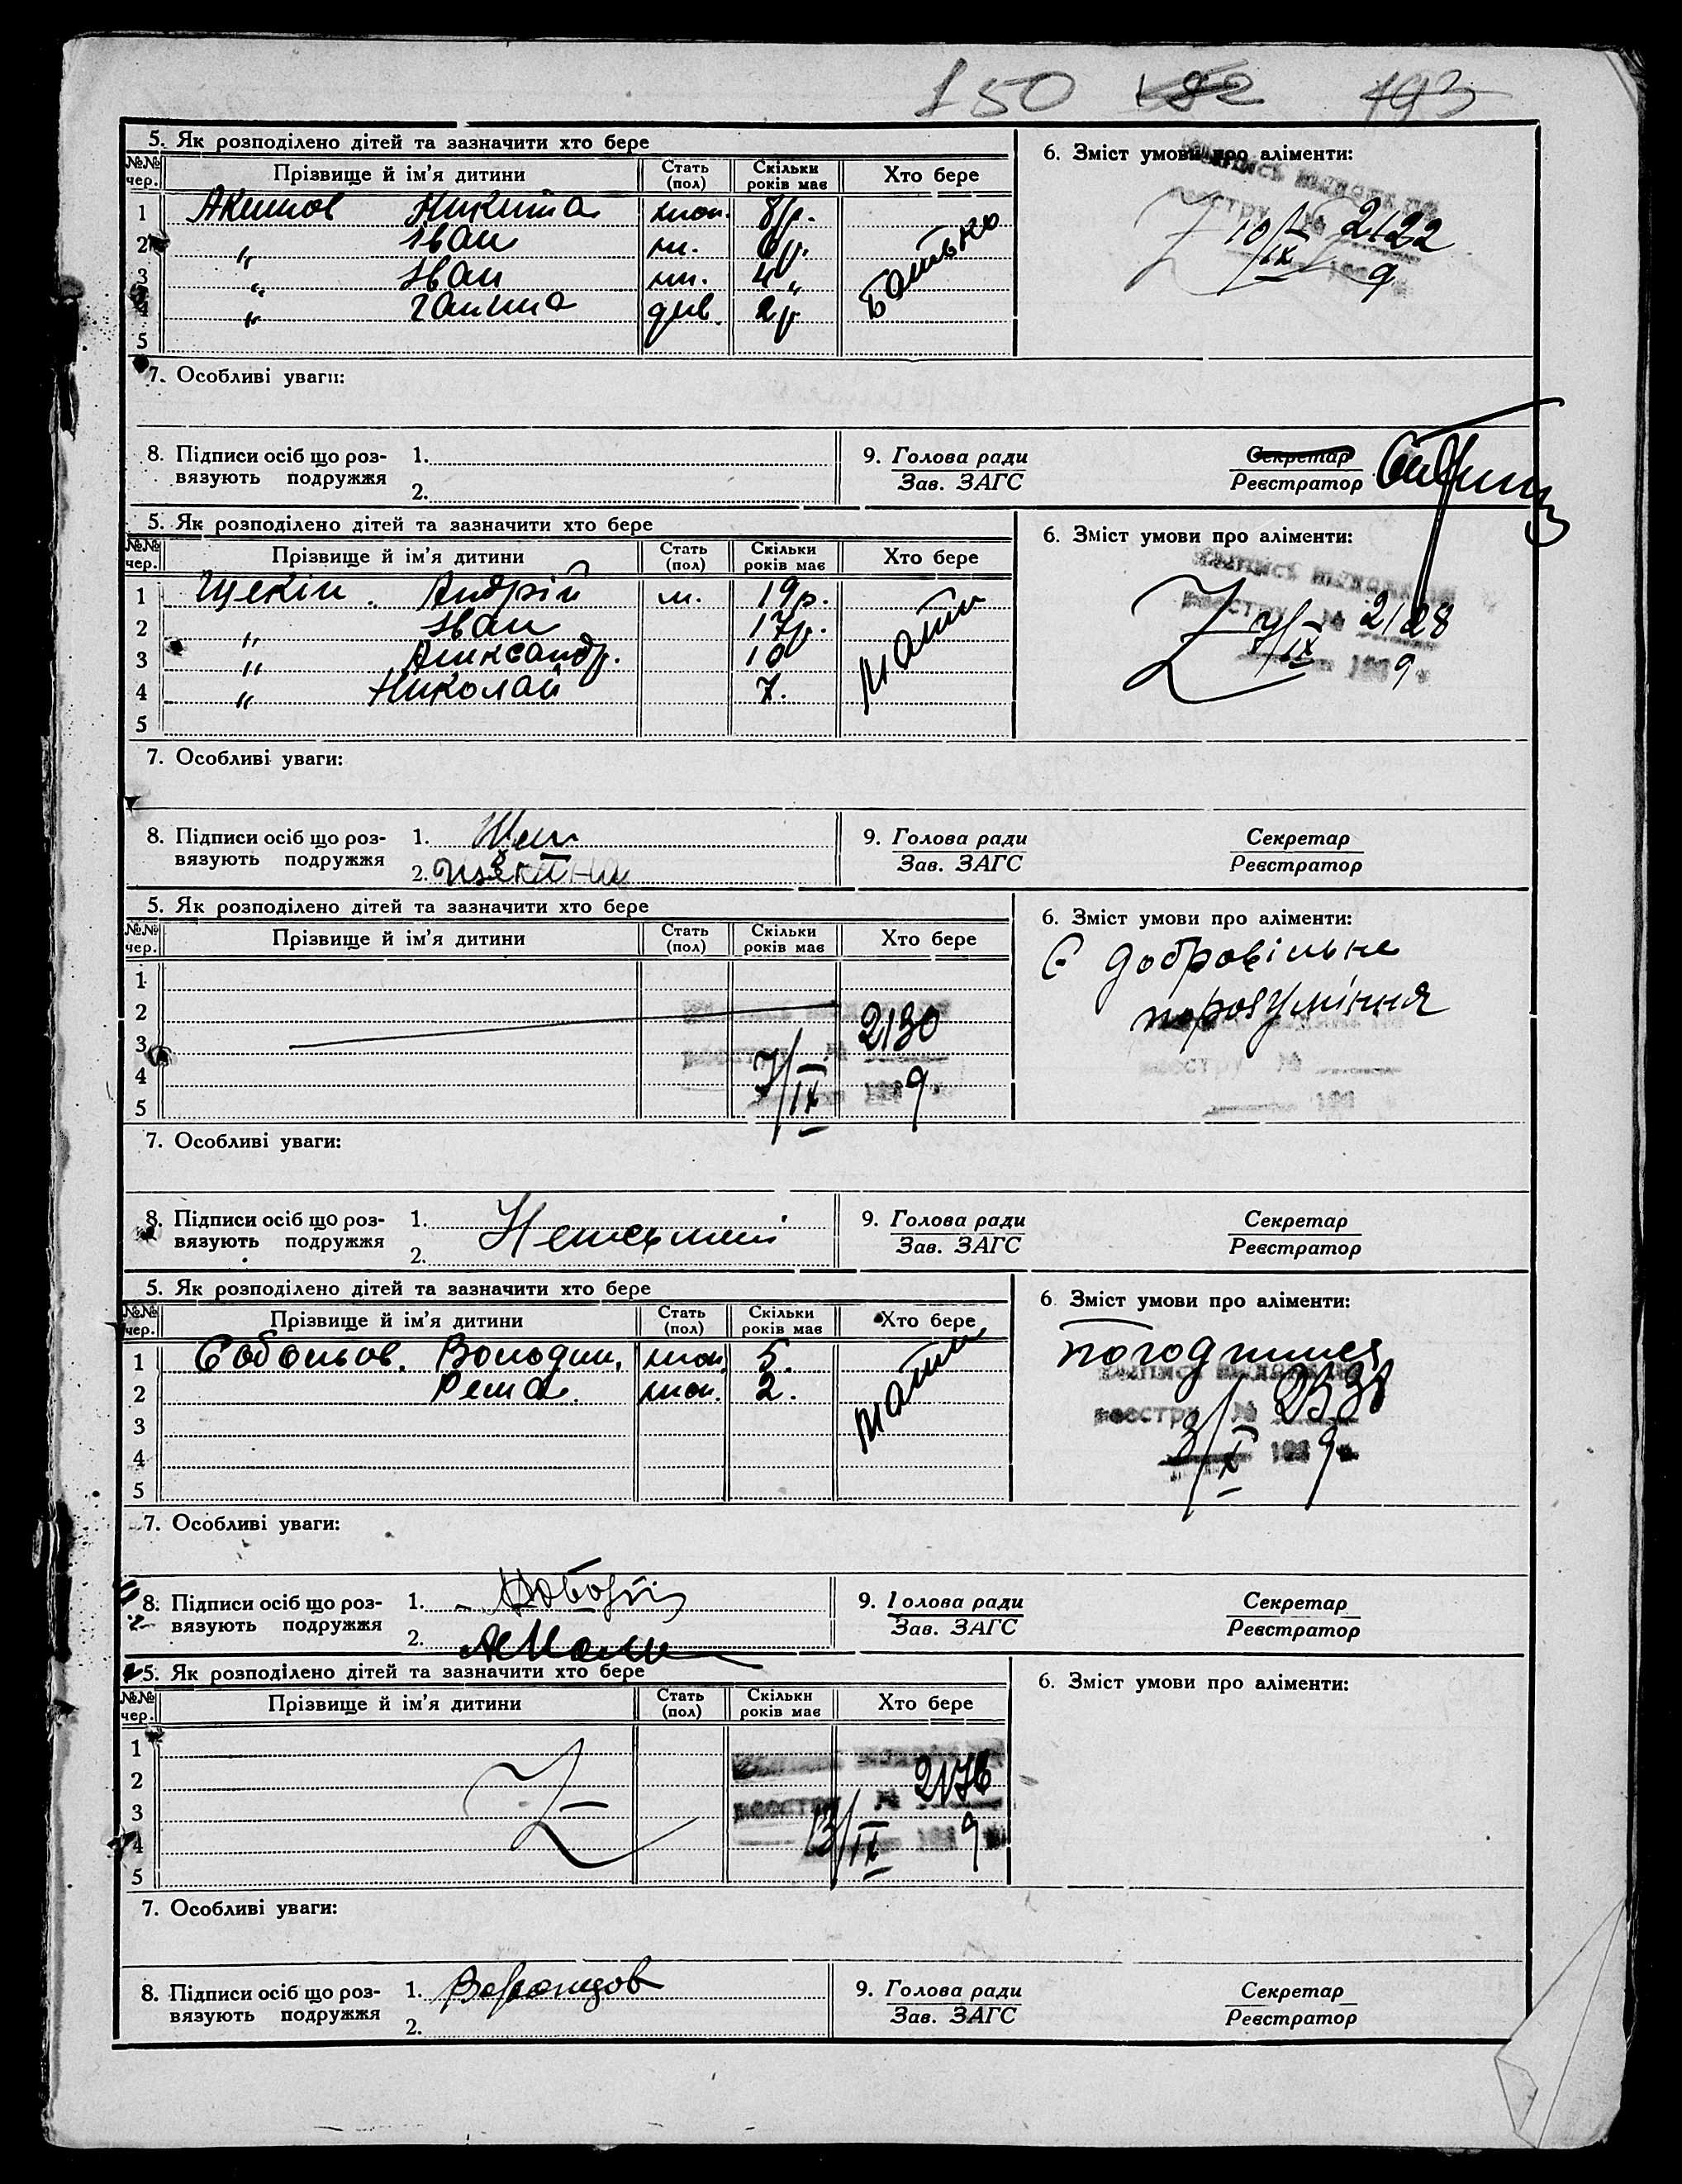 150 182 193
5. Як розподілено дітей та зазначити хто бере
6. Зміст умови про аліменти:
№№ чер. Прізвище й ім'я дитини Стать (пол) Скільки років має Хто бере
1 Акимов Никита чол. 8 р.
2 " Іван ч. 6 р.
3 " Іван чл. 4 "
4 " Ганна дів. 2 р.
5
Батько
реєстру № 2122
10/IX 193 9
7. Особливі уваги:
8. Підписи осіб що роз-
вязують подружжя
1.
2.
9. Голова ради
Зав. ЗАГС
Секретар
Реєстратор
5. Як розподілено дітей та зазначити хто бере
6. Зміст умови про аліменти:
№№ чер. Прізвище й ім'я дитини Стать (пол) Скільки років має Хто бере
1 Щекін Андрій ч. 19 р.
2 " Іван 17 р.
3 " Александр. 10
4 " Николай 7.
5
мати
реєстру № 2128
7/IX 193 9
7. Особливі уваги:
8. Підписи осіб що роз-
вязують подружжя
1.
2. Щекина
9. Голова ради
Зав. ЗАГС
Секретар
Реєстратор
5. Як розподілено дітей та зазначити хто бере
6. Зміст умови про аліменти:
№№ чер. Прізвище й ім'я дитини Стать (пол) Скільки років має Хто бере
Є добровільне
порозуміння
1
2
3
4
5
реєстру № 2130
7/IX 193 9
реєстру №
193
7. Особливі уваги:
8. Підписи осіб що роз-
вязують подружжя
1.
2.
9. Голова ради
Зав. ЗАГС
Секретар
Реєстратор
5. Як розподілено дітей та зазначити хто бере
6. Зміст умови про аліменти:
№№ чер. Прізвище й ім'я дитини Стать (пол) Скільки років має Хто бере
1 Собольов. Володим. чол. 5.
2 чол. 2.
3
4
5
мати
погодились
реєстру №
3/X 193 9
7. Особливі уваги:
8. Підписи осіб що роз-
вязують подружжя
1.
2.
9. Голова ради
Зав. ЗАГС
Секретар
Реєстратор
5. Як розподілено дітей та зазначити хто бере
6. Зміст умови про аліменти:
№№ чер. Прізвище й ім'я дитини Стать (пол) Скільки років має Хто бере
1
2
3
4
5
реєстру № 2176
13/IX 193 9
7. Особливі уваги:
8. Підписи осіб що роз-
вязують подружжя
1. Воронцов
2.
9. Голова ради
Зав. ЗАГС
Секретар
Реєстратор